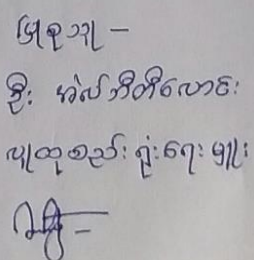 ပြုစုသူ –
ဦး အဲလ်ဘီတီလောင်း
လူထုစည်းရုံးရေးမှူး